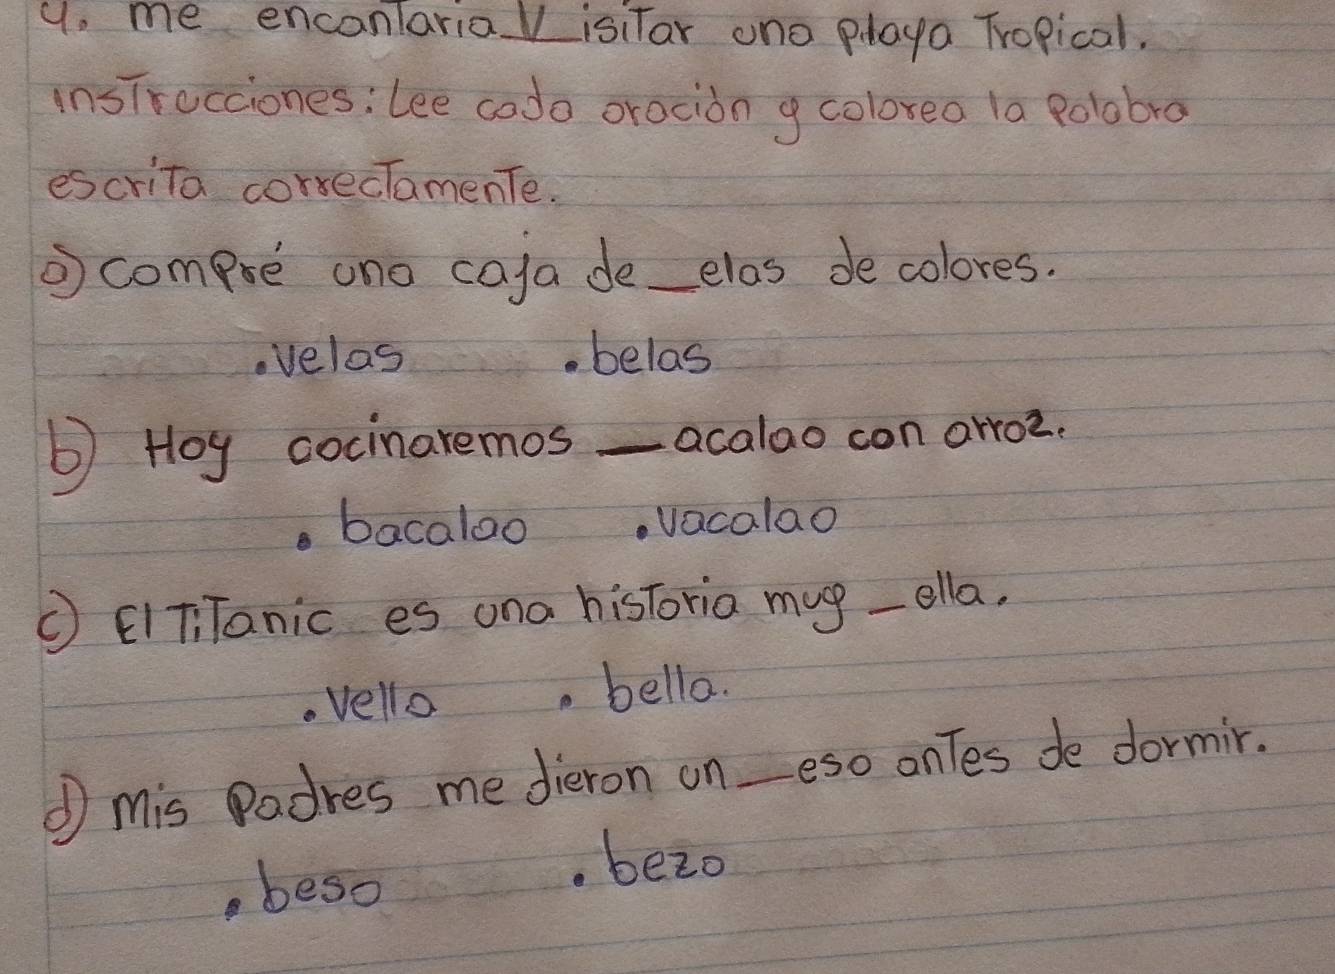 4. me encantaria V isitar una playa Tropical.
instrucciones: Lee cada oración y colorea la Palabra
escrita correctamente.
a) compré una caja de _elas de colores.
.velas .belas
b) Hoy cocinaremos _acalao con arroz.
. bacalao .vacalao
c) El Titanic es una historia muy _ella.
.vella . bella.
d) mis Padres me dieron un _eso antes de dormir.
.beso .bezo